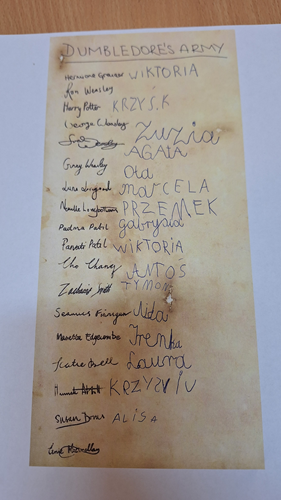 DUMBLEDORE'S ARMY
Hermione Granger WIKTORIA
Ron Weasley
Harry Potter KRZYŚ.K
George Weasley
Zuzia
AGATA
Ginny Weasley Ola
Luna Lovegood MARCELA
Neville Longbottom PRZEMEK
Padma Patil gabrysia
Parvati Patil WIKTORIA
Cho Chang ANTOŚ
Zacharias Smith TYMON
Seamus Finnigan Aida
Marietta Edgecombe Irenka
Katie Bell Laura
Hannah Abbott
Susan Bones ALISA